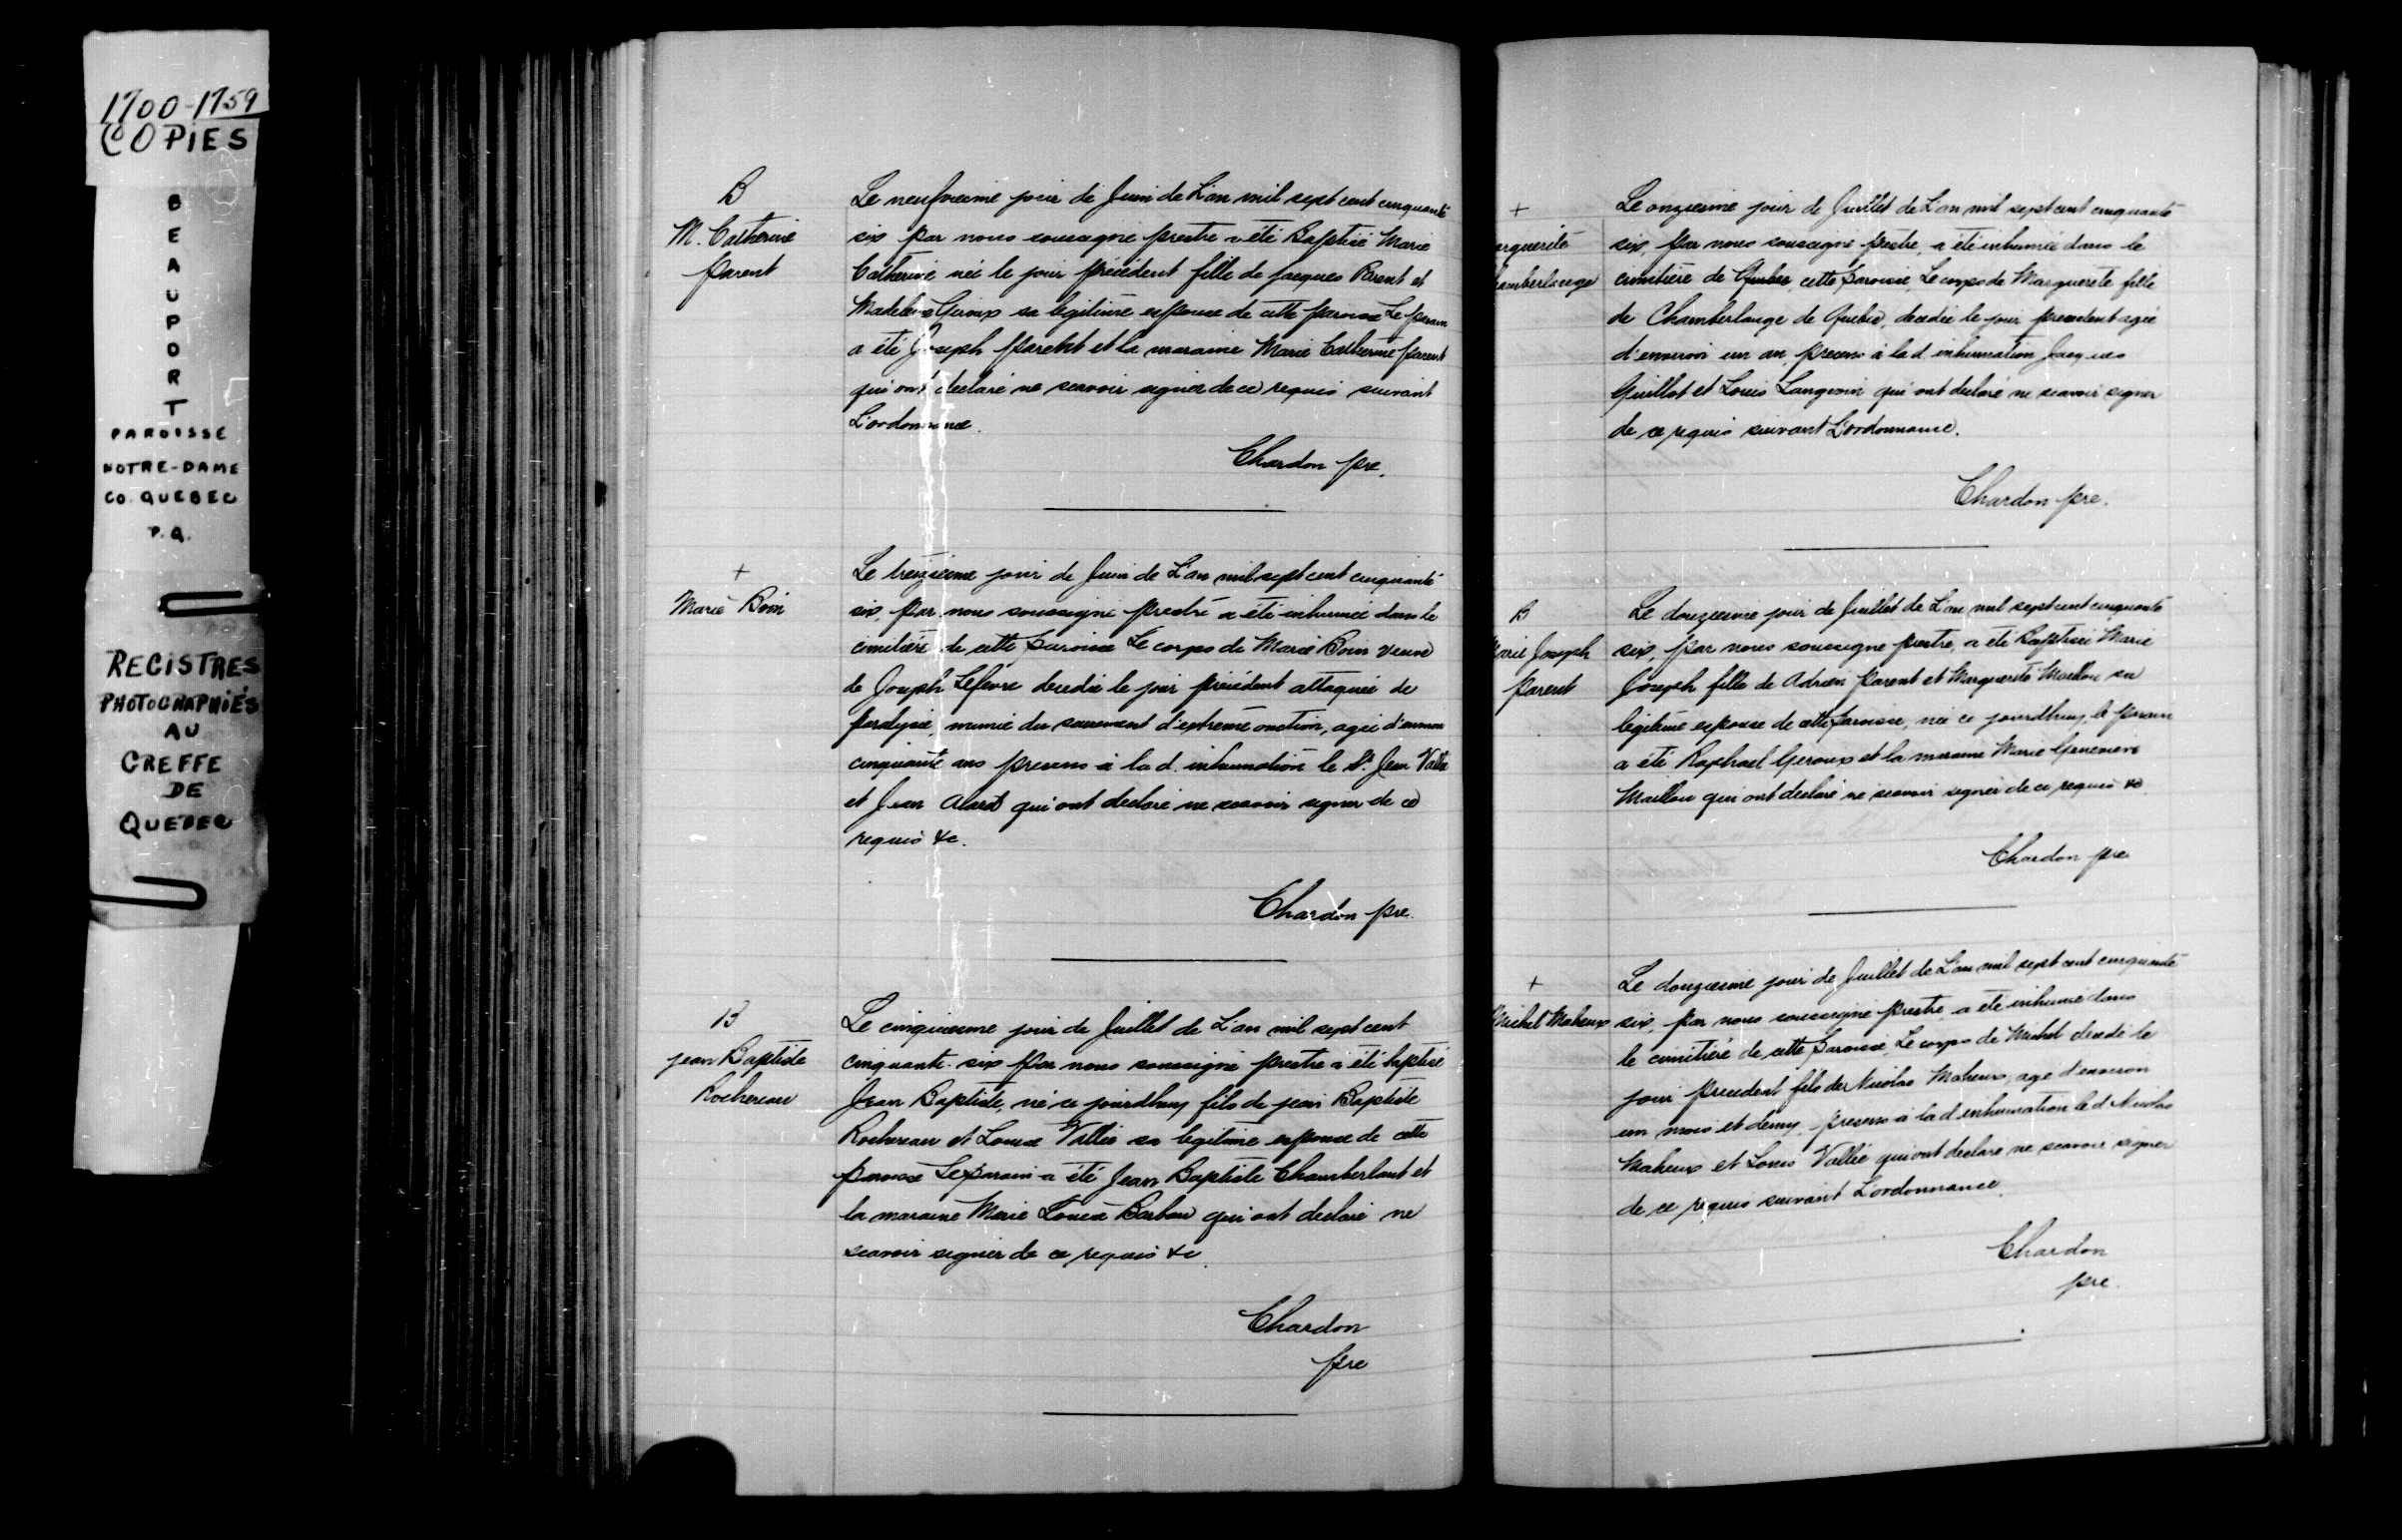 1700-1759
COPIES
BEAUPORT
PAROISSE
NOTRE-DAME
CO. QUEBEC
P.Q.
REGISTRES
PHOTOGRAPHIÉS
AU
GREFFE
DE
QUEBEC
B
M. Catherine
parent
Le neufvieme jour de Juin de L'an mil sept cent cinquante
six par nous soussigné prestre a été Baptisé Marie
Catherine née le jour précédent fille de jacques Parent et
Madeleine Giroux sa legitime espouse de cette paroisse Le parain
a été Joseph parent et la maraine Marie Catherine parent
qui ont declaré ne scavoir signer de ce requis suivant
L'ordonnance.
Chardon pre.
+
Marie Boin
Le treizieme jour de Juin de L'an mil sept cent cinquante
six, par nous soussigné prestre a été inhumée dans le
cimitiere de cette paroisse Le corps de Marie Boin veuve
de Joseph Lefevre decedée le jour précédent attaquée de
paralysie, munie du sacrement d'extreme onction, agée d'environ
cinquante ans presens à la d. inhumation le Sr. Jean Vallée
et Jean Alard qui ont declaré ne scavoir signer de ce
requis &c.
Chardon pre.
B
jean Baptiste
Rochereau
Le cinquieme jour de Juillet de L'an mil sept cent
cinquante-six par nous soussigné prestre a été baptisé
Jean Baptiste, né ce jourdhuy fils de jean Baptiste
Rochereau et Louise Vallée sa legitime espouse de cette
paroisse Le parain a été Jean Baptiste Chamberlant et
la maraine Marie Louise Barbau qui ont declaré ne
scavoir signer de ce requis &c.
Chardon
pre
+
arguerite
hamberlange
Le onzieme jour de Juillet de L'an mil sept cent cinquante
six, par nous soussigné prestre, a été inhumée dans le
cimetiere de Quebec, cette paroisse, Le corps de Marguerete fille
de Chamberlange de Quebec, decedée le jour precedent agée
d'environ un an, presens à la d. inhumation Jacques
Guillot et Louis Langevin qui ont declaré ne scavoir signer
de ce requis suivant L'ordonnance.
Chardon pre.
B
Marie Joseph
parent
Le douzieme jour de Juillet de L'an mil sept cent cinquante
six, par nous soussigné prestre, a été Baptisée Marie
Joseph fille de Adrien Parent et Marguerite Maillou sa
legitime espouse de cette paroisse, née ce jourdhuy, le parain
a été Raphael Geroux et la maraine Marie Genevieve
Maillou qui ont declaré ne scavoir signer de ce requis &c
Chardon pre
+
Michel Maheux
Le douzieme jour de Juillet de L'an mil sept cent cinquante
six, par nous soussigné prestre a été inhumé dans
le cimitiere de cette paroisse, Le corps de Michel decedé le
jour precedent fils de Nicolas Maheux, agé d'environ
un mois et demy, presens à la d inhumation le d Nicolas
Maheux et Louis Vallée qui ont declaré ne scavoir signer
de ce requis suivant L'ordonnance.
Chardon
pre.